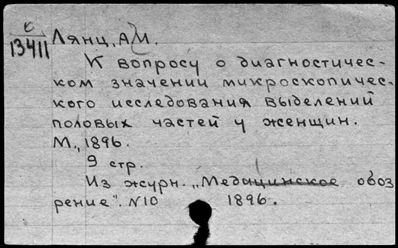 к
13411
Лянц, А.И.
К вопросу о диагностичес-
ком значении микроскопичес-
кого исследования выделений
половых частей у женщин.
М., 1896.
9 стр.
Из журн. „Медицинское обоз
рение". N10 1896.